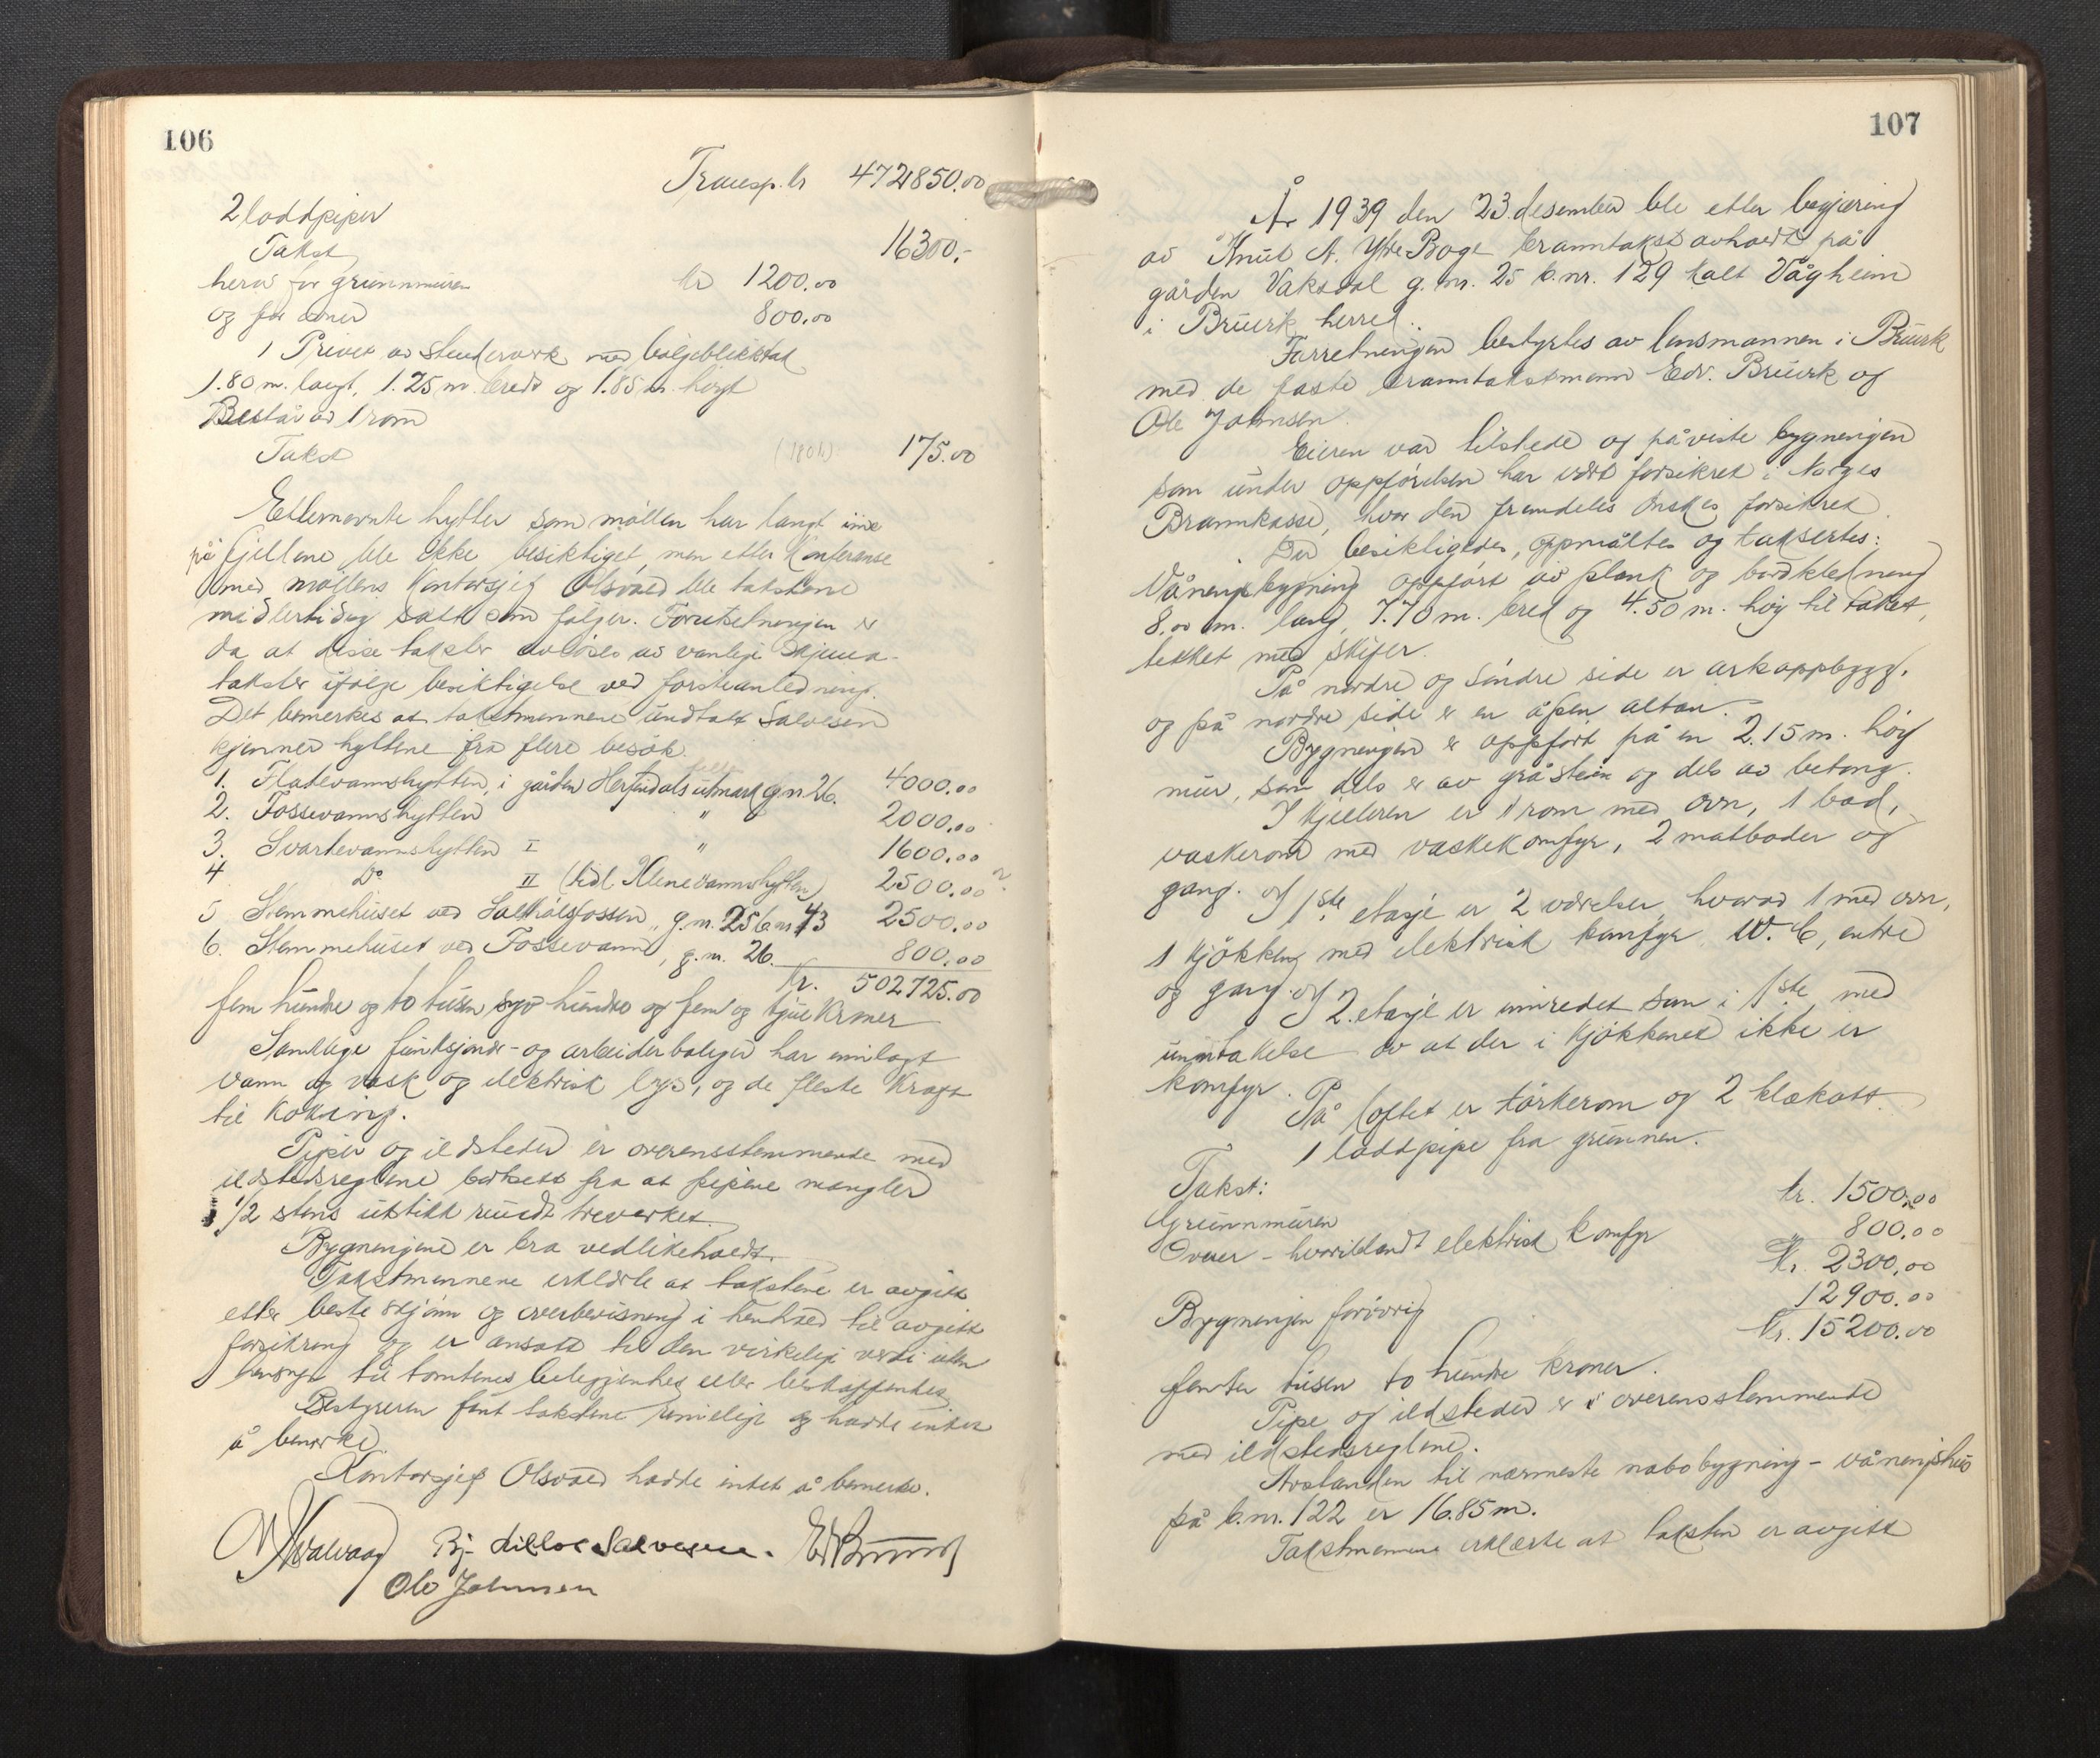 106
Transp. kr 472850.00
2 loddpiper
Takst 16300,-
herav for grunnmuren kr 1200.00
og for ovner 800.00
1 Privet av stenderverk med bølgeblikktak
1.80 m. langt, 1.25 m. bredt og 1.85 m. høgt
Består av 1 rom
Takst 175.00
Etternevnte hytter som møllen har langt inne
på fjellene ble ikke besiktiget, men etter konferanse
med møllens kontorsjef Olsvoll ble takstene
midlertidig satt som følger. Forutsetningen er
da at disse takster avløses av vanlige skjema-
takster ifølge besiktigelse ved første anledning.
Det bemerkes at takstmennene undtatt Salvesen
kjenner hyttene fra flere besøk.
1. Fladevannshytten, i gården Herfindals utmark g.n 26. 4000.00
2. Fossevannshytten " 2000.00
3. Svartevannshytten I " 1600.00
4 Do II (tidl. Klenevannshytten) 2500.00
5 Stemmehuset ved fossen, g.nr. 25 b.nr 43 2500.00
6. Stemmehuset ved Fossevann, g.nr. 26. 800.00
Kr. 502725.00
fem hundre og to tusen syv hundre og fem og tjue kroner
Samtlige funksjonær- og arbeiderboliger har innlagt
vann og vask og elektrisk lys, og de fleste kraft
til koking.
Piper og ildsteder er overensstemmende med
ildstedsreglene bortsett fra at pipene mangler
1/2 stens utstikk rundt treverket.
Bygningene er bra vedlikeholdt.
Takstmennene erklærte at takstene er avgitt
etter beste skjønn og overbevisning i henhold til avgitt
forsikring og er ansatt til den virkelige verdi uten
hensyn til tomtenes beliggenhet eller beskaffenhet
Bestyreren fant takstene rimelige og hadde intet
å bemerke.
Kontorsjef Olsvoll hadde intet å bemerke.
Salvesen. E. Bruvik
Ole Johnsen
107
År 1939 den 23. desember ble etter begjæring
av Knut A. Ytre Boge branntakst avholdt på
gården Vaksdal g.nr. 25 b.nr. 129 kalt Vågheim
i Bruvik herred.
Forretningen bestyrtes av lensmannen i Bruvik
med de faste branntakstmenn Edv. Bruvik og
Ole Johnsen.
Eieren var tilstede og påviste bygningen
som under oppførelsen har vært forsikret i Norges
Brannkasse, hvor den fremdeles ønskes forsikret.
Der besiktigedes, oppmåltes og takserte:
Våningsbygning oppført av plank og bordkledning
8.00 m. lang, 7.70 m. bred og 4.50 m. høg til taket,
tekket med skifer.
På nordre og søndre side er arkoppbygg.
og på nordre side er en åpen altan.
Bygningen er oppført på en 2.15 m. høy
mur, som dels er av gråstein og dels av betong.
I kjelleren er 1 rom med ovn, 1 bad,
vaskerom med vaskekomfyr, 2 matboder og
gang. I 1ste etasje er 2 værelser, hvorav 1 med ovn,
1 kjøkken med elektrisk komfyr, W.C, entre
og gang. I 2. etasje er innredet som i 1ste med
unntakelse av at der i kjøkkenet ikke er
komfyr.
På loftet er tørkerom og 2 klækott.
1 loddpipe fra grunnen.
Takst:
Grunnmuren kr. 1500.00
Ovner - hvoriblandt elektrisk komfyr " 800.00
Kr. 2300,00
Bygningen forøvrig 12900.00
kr. 15200.00
femten tusen to hundre kroner.
Pipe og ildsteder er i overensstemmende
med ildstedsreglene.
Avstanden til nærmeste nabobygning - våningshus
på b.nr. 122 er 16.85 m.
Takstmennene erklærte at taksten er avgitt